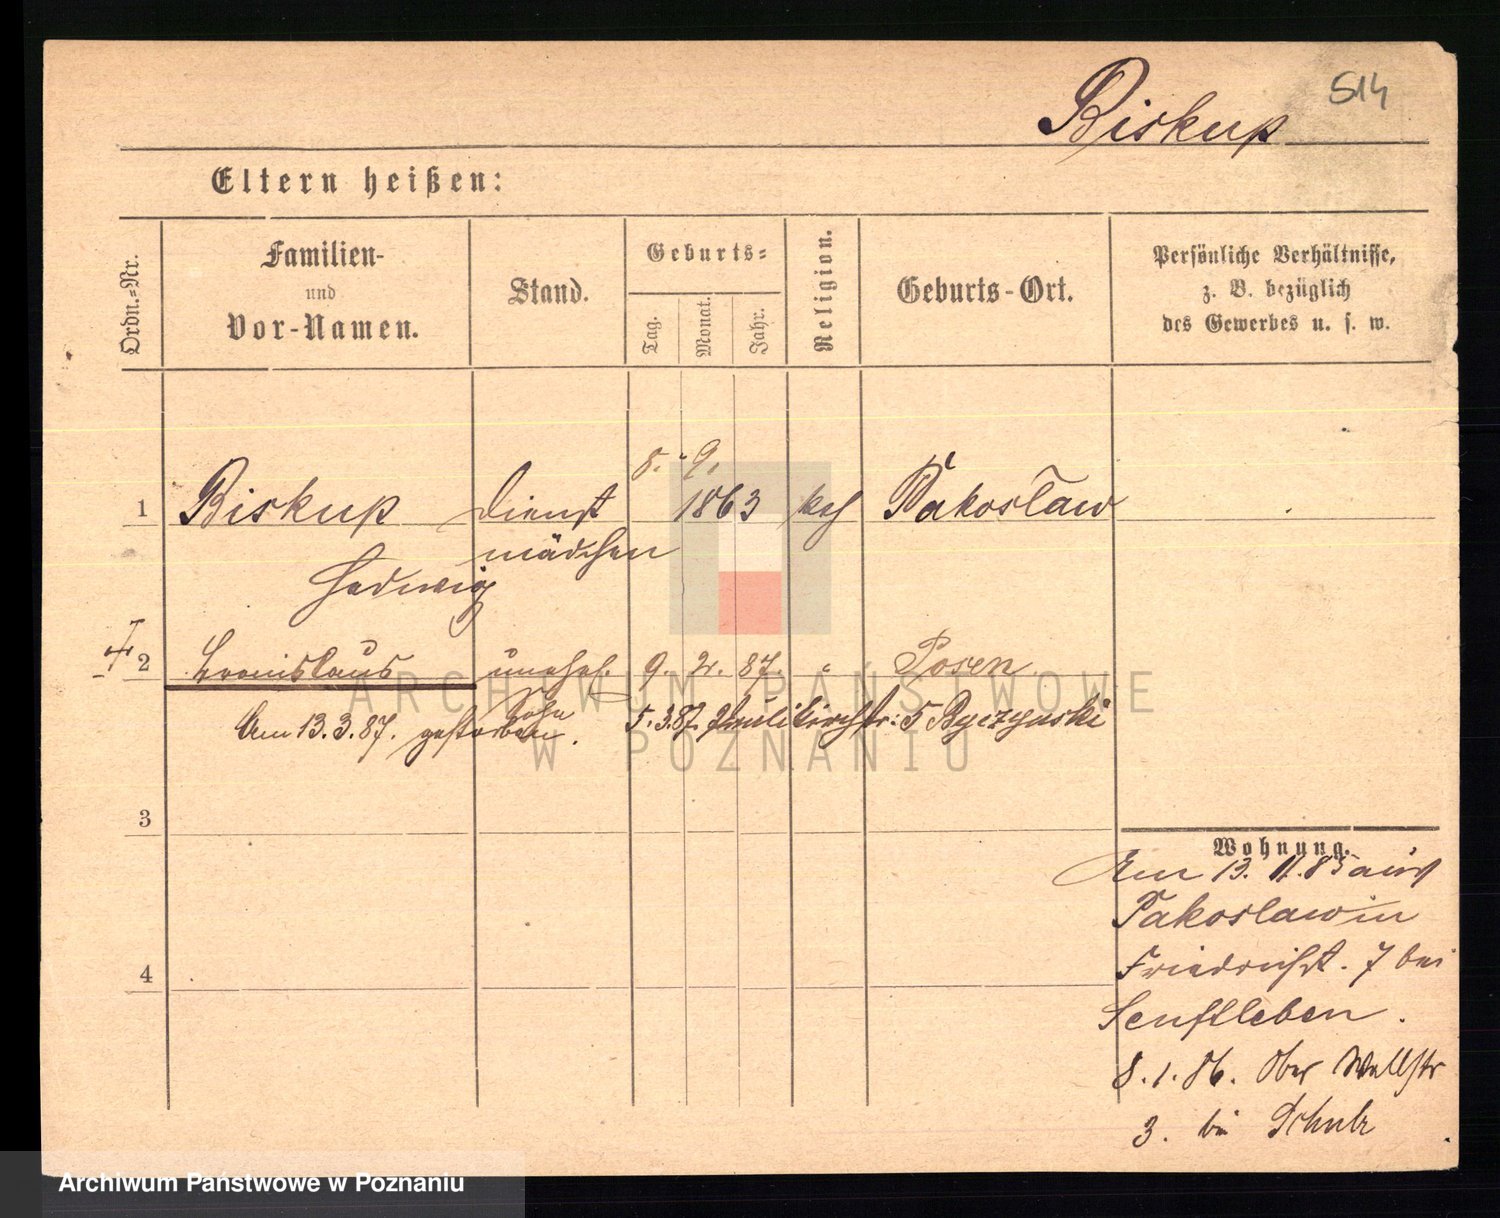 514
Biskup
Eltern heißen:
Ordn.=Nr.
Familien-
und
Vor-Namen.
Stand.
Geburts=
Tag.
Monat.
Jahr.
Religion.
Geburts-Ort.
Persönliche Verhältnisse,
z. B. bezüglich
des Gewerbes u. s. w.
8. 9.
1 Biskup Dienst 1863 kth Pakosław
mädchen
Hedwig
2 Bronislaus unehel. 9. 2. 87. " Posen
Sohn
Am 13.3.87. gestorben. 5.3.87. Paulikirchstr: 5 Byczynski
3
Wohnung.
Am 13. 11. 85 aus
Pakoslaw in
4
Friedrichst. 7 bei
Senftleben.
8.1.86. Ober Wallstr
3. bei Schulz
ARCHIWUM PAŃSTWOWE
W POZNANIU
Archiwum Państwowe w Poznaniu